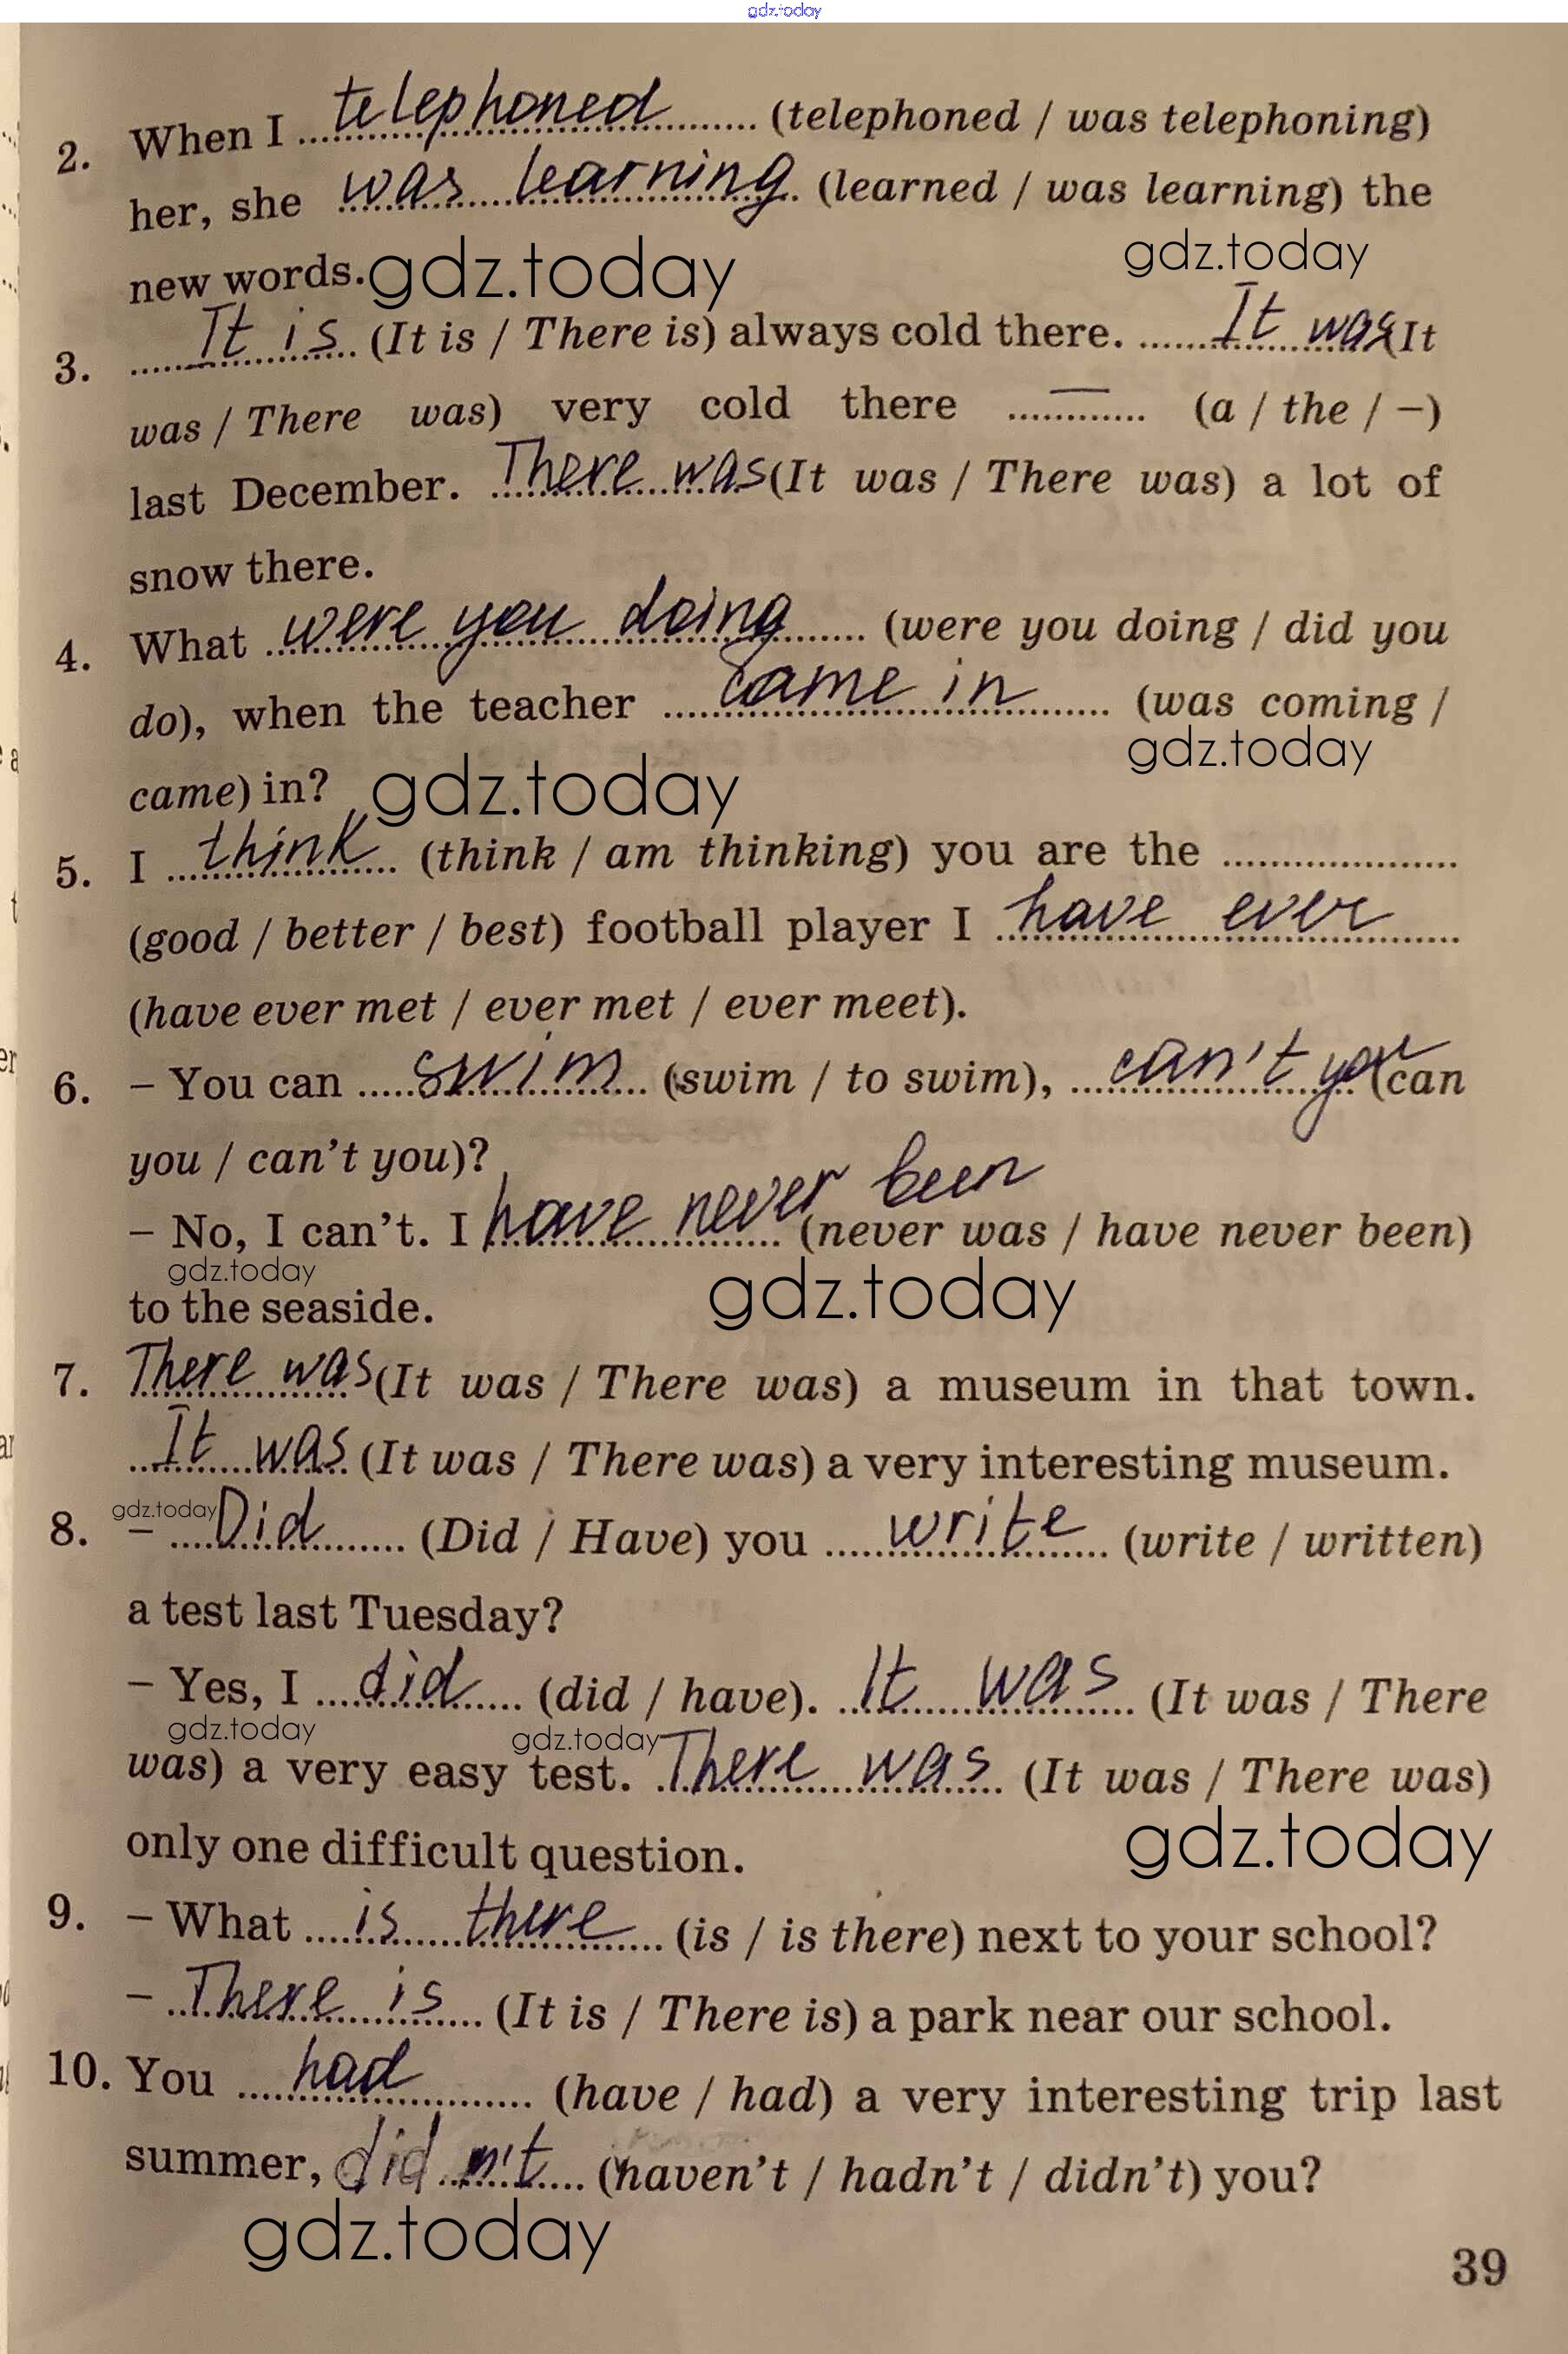 gdz.today
2. When I telephoned (telephoned / was telephoning)
her, she was learning (learned / was learning) the
new words. gdz.today gdz.today
3. It is (It is / There is) always cold there. It was (It
was / There was) very cold there — (a / the / –)
last December. There was (It was / There was) a lot of
snow there.
4. What were you doing (were you doing / did you
do), when the teacher came in (was coming /
came) in? gdz.today gdz.today
5. I think (think / am thinking) you are the ....................
(good / better / best) football player I have ever
(have ever met / ever met / ever meet).
6. – You can swim (swim / to swim), can't you (can
you / can't you)?
– No, I can't. I have never been (never was / have never been)
gdz.today gdz.today
to the seaside.
7. There was (It was / There was) a museum in that town.
It was (It was / There was) a very interesting museum.
gdz.today
8. – Did (Did / Have) you write (write / written)
a test last Tuesday?
– Yes, I did (did / have). It was (It was / There
gdz.today gdz.today
was) a very easy test. There was (It was / There was)
only one difficult question. gdz.today
9. – What is there (is / is there) next to your school?
– There is (It is / There is) a park near our school.
10. You had (have / had) a very interesting trip last
summer, didn't (haven't / hadn't / didn't) you?
gdz.today
39